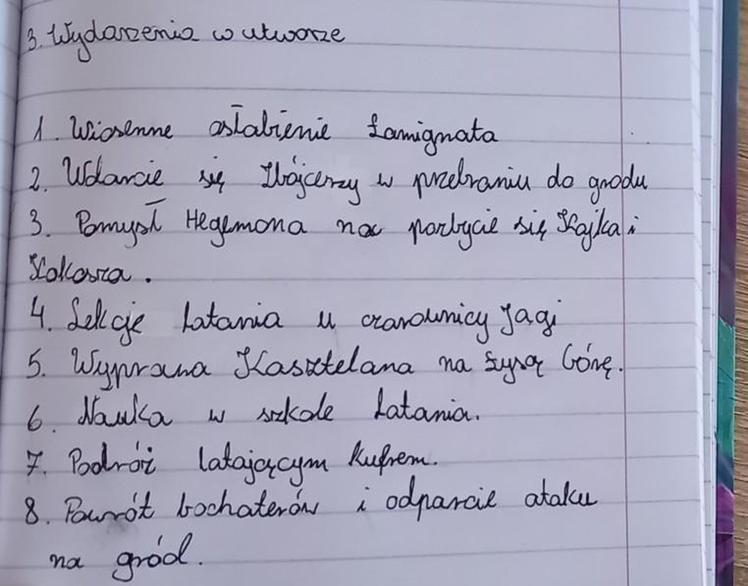 3. Wydarzenia w utworze
1. Wiosenne osłabienie Łamignata
2. Wdarcie się Zbójcerzy w przebraniu do grodu
3. Pomysł Hegemona na pozbycie się Kajka i
Kokosza.
4. Lekcje latania u czarownicy Jagi
5. Wyprawa Kasztelana na Łysą Górę.
6. Nauka w szkole latania.
7. Podróż latającym kufrem.
8. Powrót bochaterów i odparcie ataku
na gród.